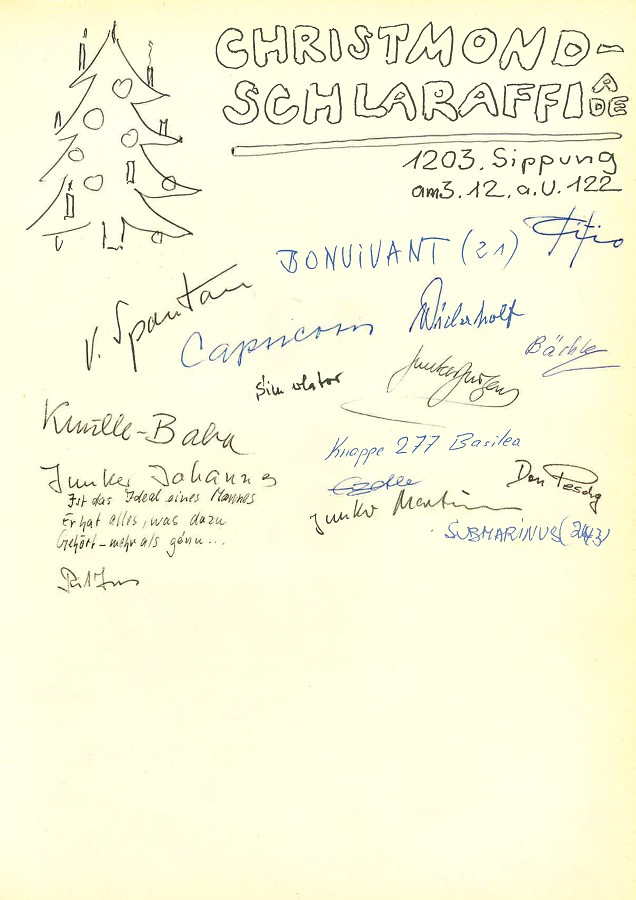 CHRISTMOND-
SCHLARAFFIADE
1203. Sippung
am 3.12. a.U. 122
BONViVANT (21)
V. Spontan
Capricorn
Widerholt
Bächle
Simulator
Knülle-Baba
Knappe 277 Basilea
Junker Johannes
Ist das Ideal eines Mannes
Er hat alles, was dazu
Gehört - mehr als genu...
Don Pesch
Junker Martin
SUBMARiNUS (243)